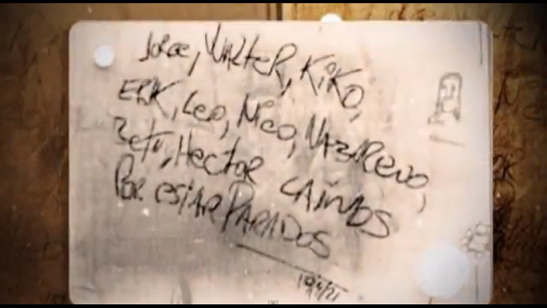 JORGE, WALTER, KIKO,
ERIK, LEO, NICO, NAZARENO,
BETO, HECTOR CAIDOS
POR ESTAR PARADOS